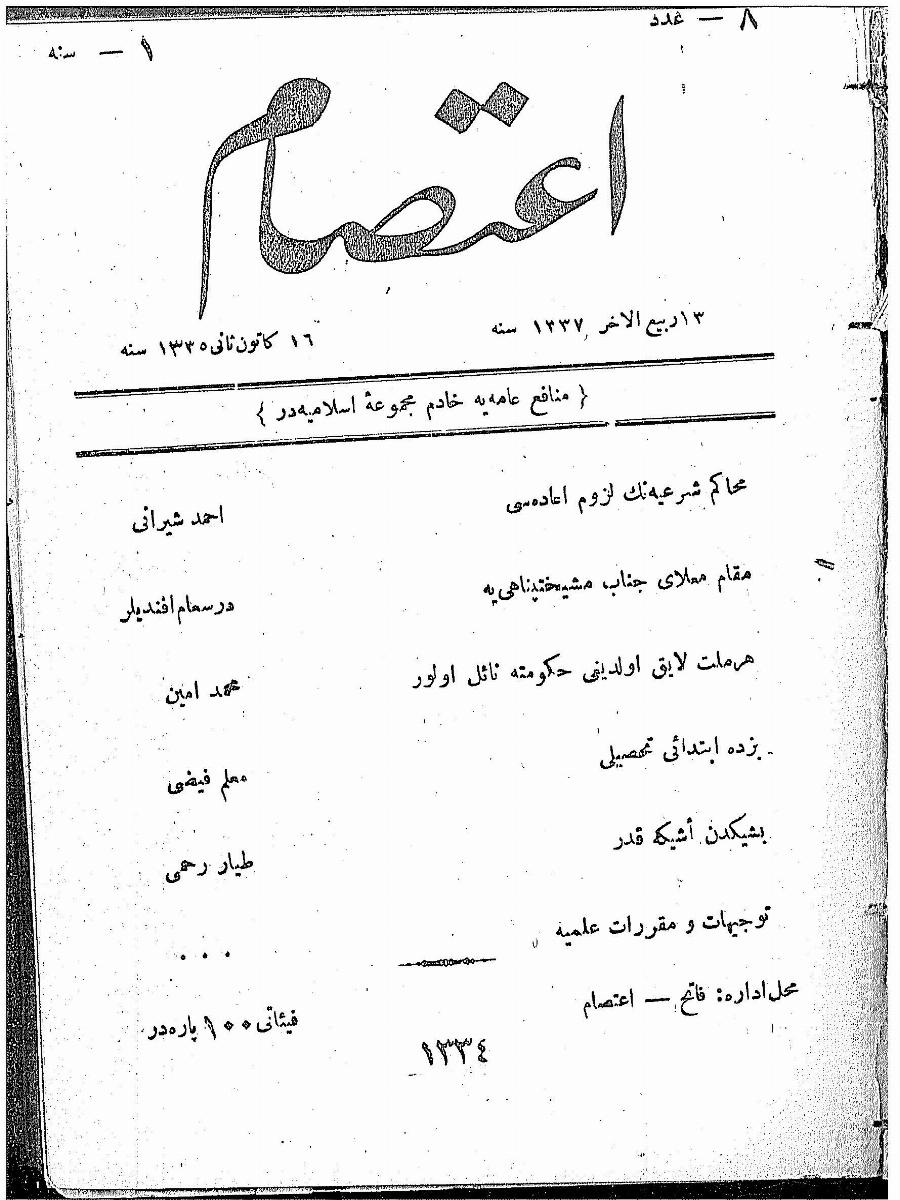 ٨ — عدد
١ — سنه
اعتصام
١٣ ربيع الاخر ١٣٣٧ سنه
١٦ كانون ثانى ١٣٣٥ سنه
{ منافع عامه‌يه خادم مجموعهٔ اسلاميه‌در }
محاكم شرعيه‌نك لزوم اعاده‌سى احمد شيرانى
مقام معلاى جناب مشيختپناهى‌يه درسعام افنديلر
هرملت لايق اولديغى حكومته نائل اولور محمد امين
بزده ابتدائى تحصيلى معلم فيضى
بشيكدن أشيكه قدر طيار رحمى
توجيهات و مقررات علميه . . .
محل اداره: فاتح — اعتصام
فيئاتى ١٠٠ پاره‌در
١٣٣٤